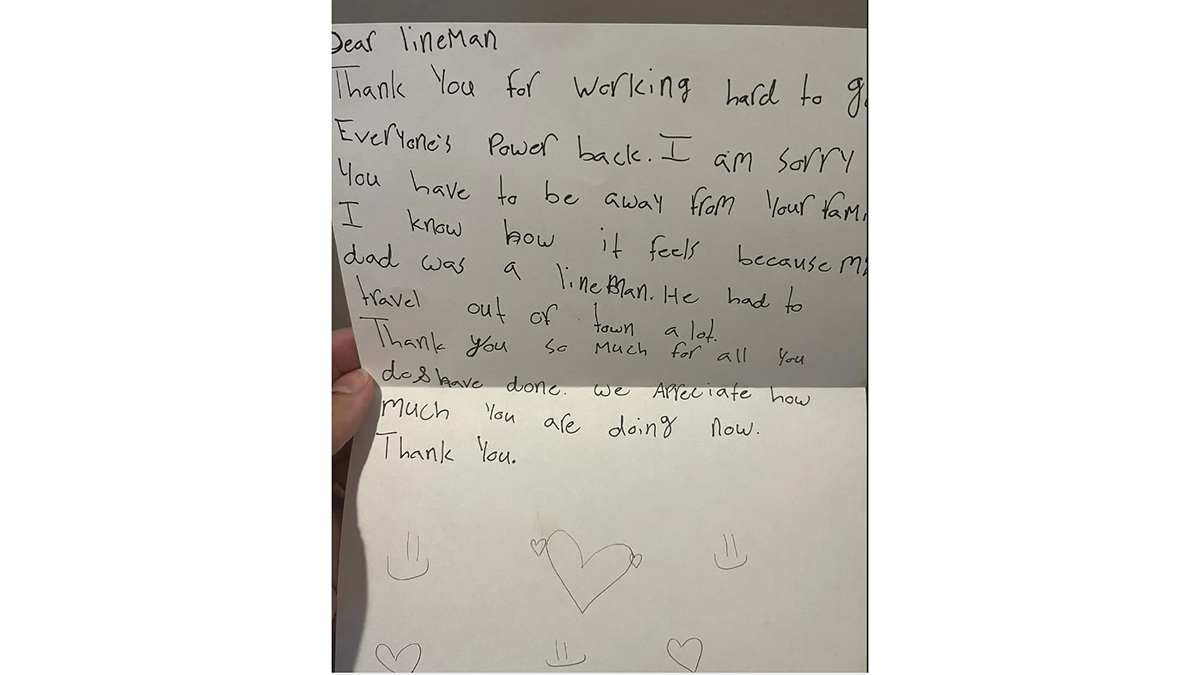 Dear lineMan
Thank You for working hard to
Everyone's Power back. I am sorry
You have to be away from Your
I know how it feels because
dad was a lineMan. He had to
travel out of town a lot.
Thank you so much for all you
do & have done. We Appreciate how
much You are doing now.
Thank You.